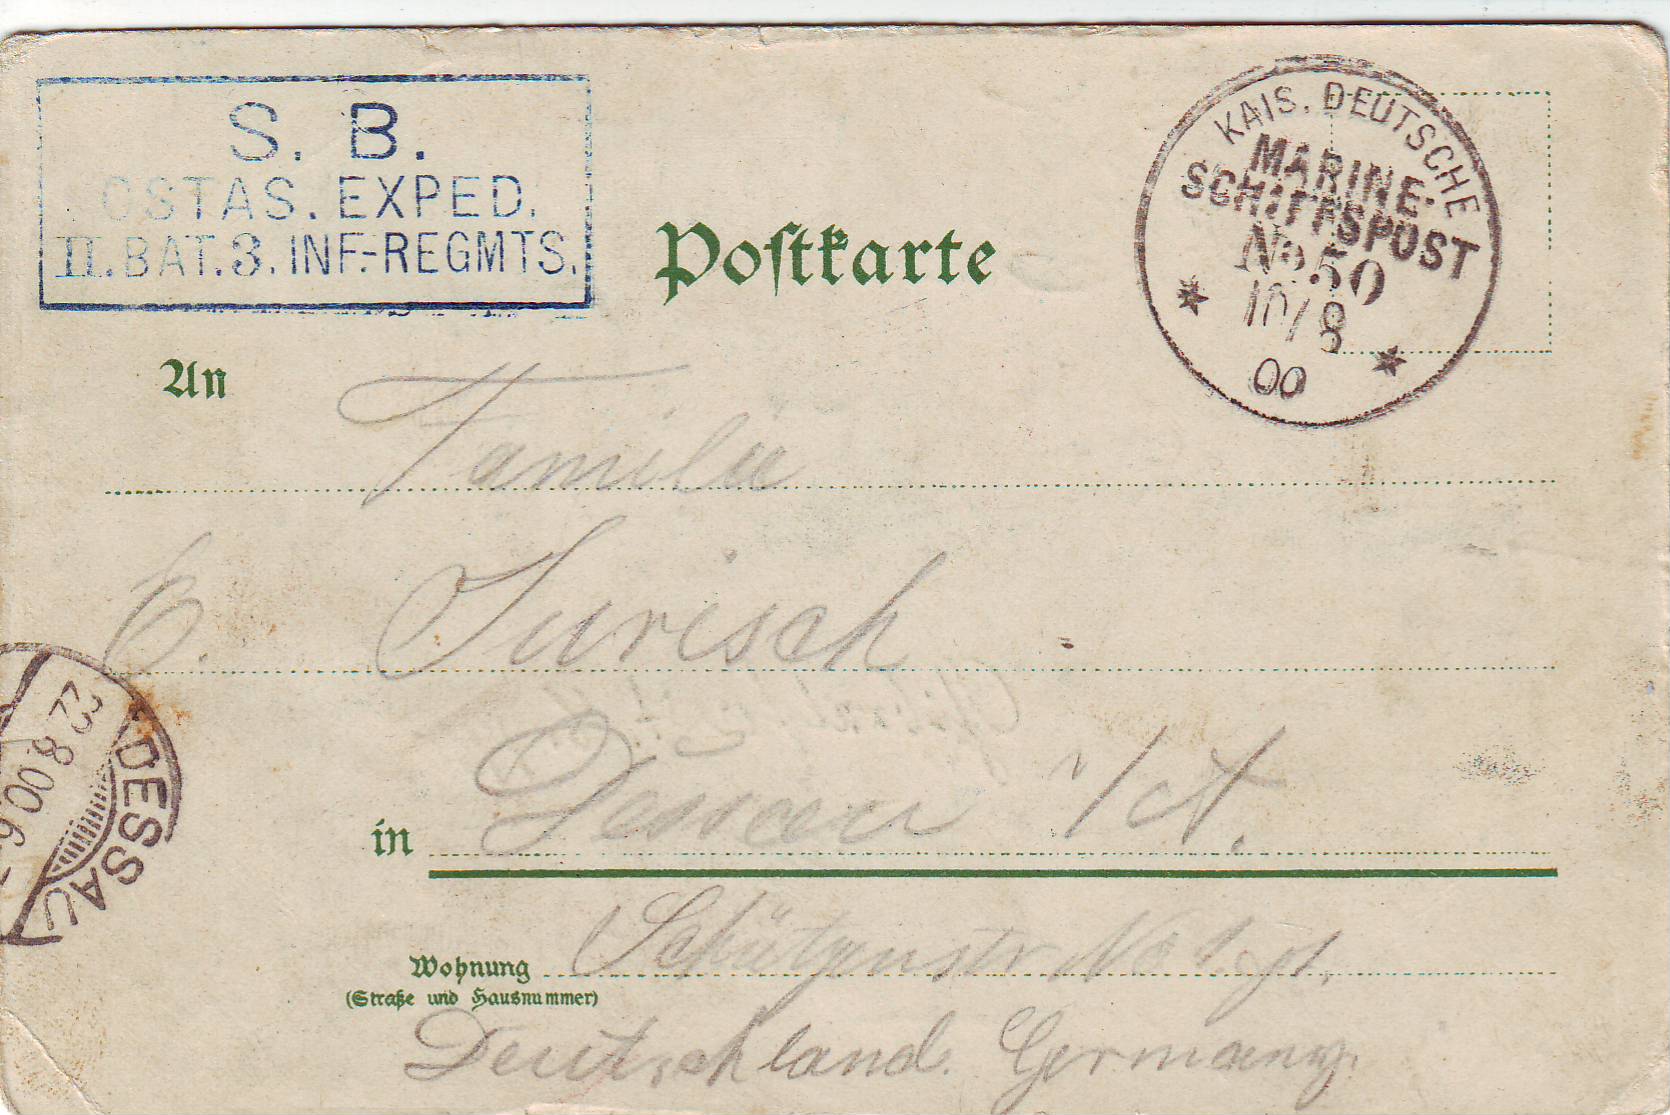 S. B.
OSTAS. EXPED.
II. BAT. 3. INF.-REGMTS.
Postkarte
KAIS. DEUTSCHE
MARINE-
SCHIFFSPOST
No 50
10/8
00
An
Familie
E. Jurisch
in Dessau i/A.
Wohnung Schützenstr No 1 pt.
(Straße und Hausnummer)
Deutschland. Germany.
DESSAU
22 8 00 6-7